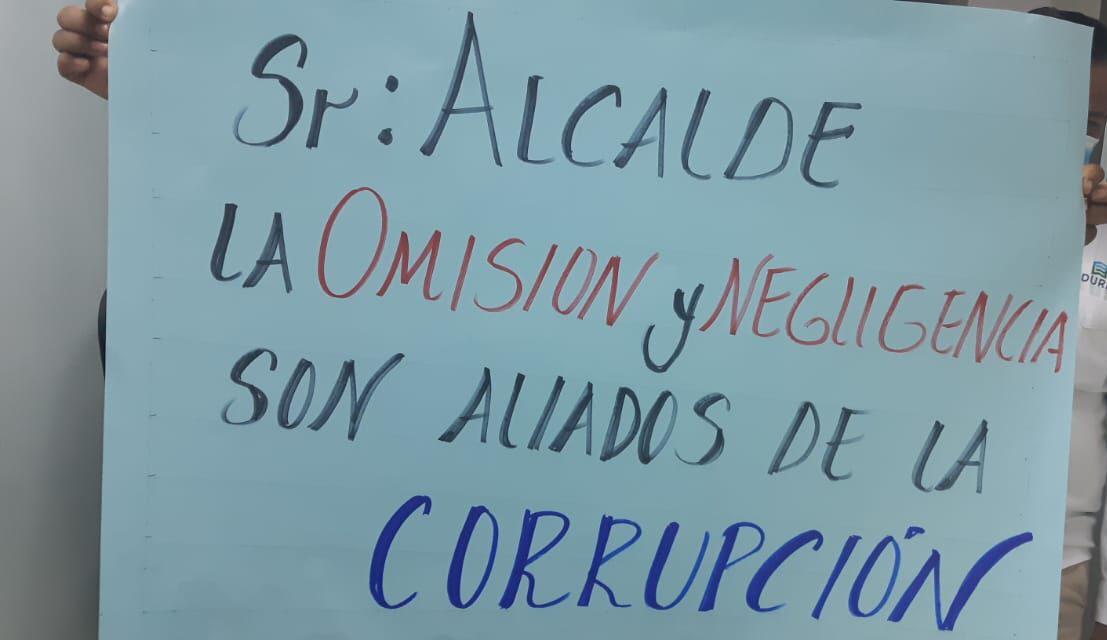 Sr: ALCALDE
LA OMISION y NEGLIGENCIA
SON ALIADOS DE LA
CORRUPCIÓN